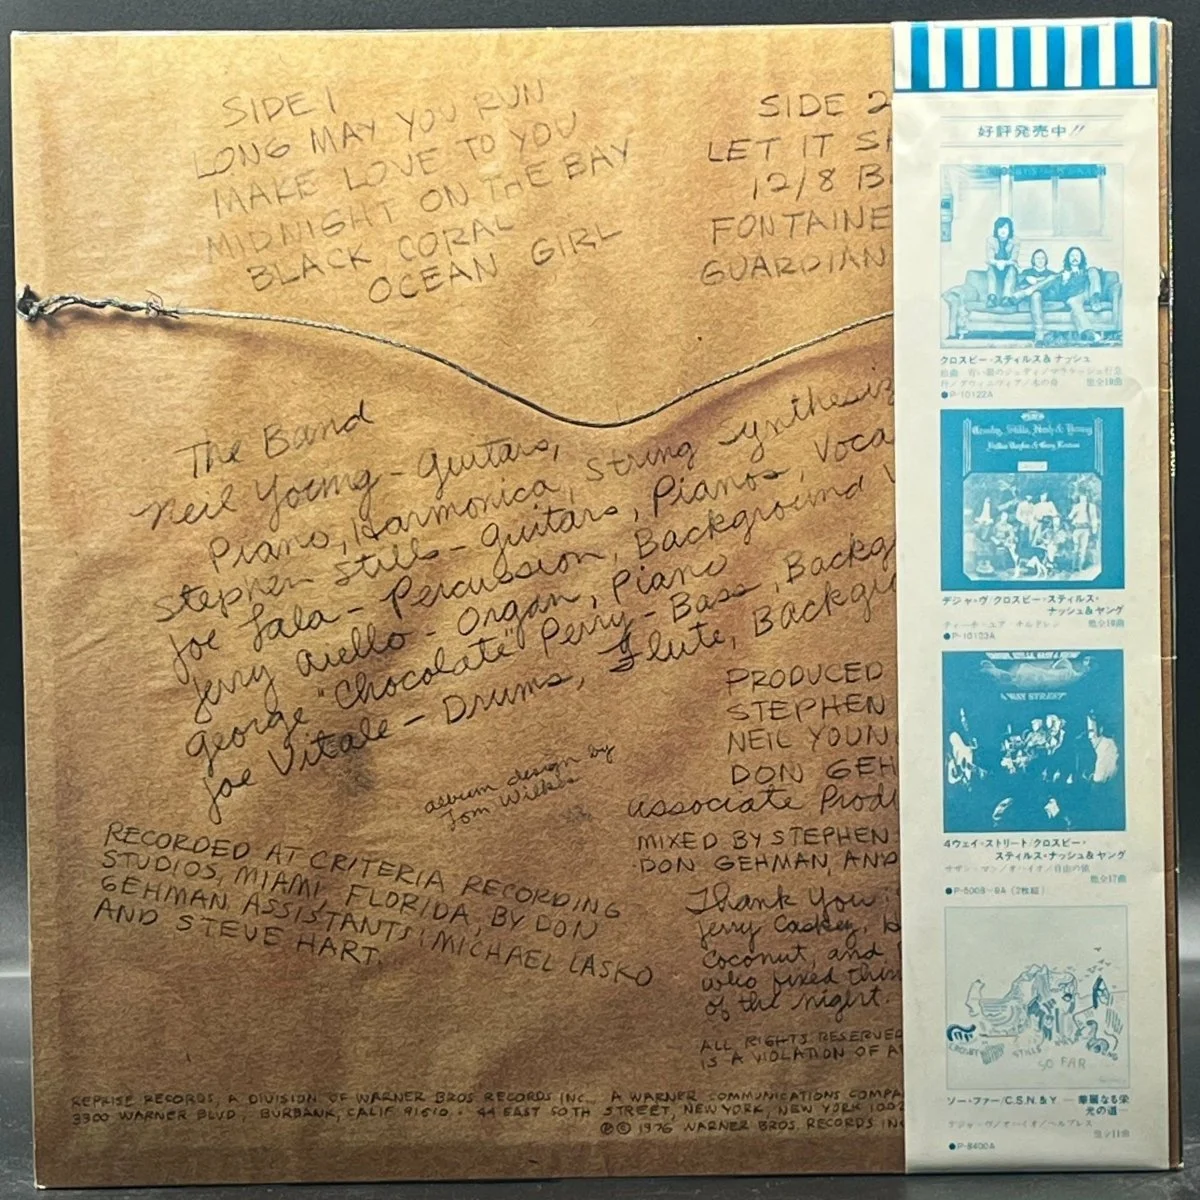 SIDE 1
LONG MAY YOU RUN
MAKE LOVE TO YOU
MIDNIGHT ON THE BAY
BLACK CORAL
OCEAN GIRL
SIDE 2
LET IT S
12/8 B
FONTAINE
GUARDIAN
The Band
Neil Young - Guitars,
Piano, Harmonica, String Synthesiz
Stephen Stills - Guitars, Pianos, Voca
Joe Lala - Percussion, Background V
Jerry Aiello - Organ, Piano
George "Chocolate" Perry - Bass, Backg
Joe Vitale - Drums, Flute, Backgr
album design by
Tom Wilkes
RECORDED AT CRITERIA RECORDING
STUDIOS, MIAMI, FLORIDA, BY DON
GEHMAN ASSISTANTS: MICHAEL LASKO
AND STEVE HART.
PRODUCED
STEPHEN
NEIL YOUN
DON GEH
associate Produ
MIXED BY STEPHEN
DON GEHMAN, AND
Thank You
Jerry Caskey,
Coconut, and
who fixed thin
of the night.
ALL RIGHTS RESERVED
IS A VIOLATION OF A
REPRISE RECORDS, A DIVISION OF WARNER BROS RECORDS INC., A WARNER COMMUNICATIONS COMPA
3300 WARNER BLVD, BURBANK, CALIF 91510 · 44 EAST 50TH STREET, NEW YORK, NEW YORK 1002
℗ © 1976 WARNER BROS. RECORDS INC
好評発売中!!
クロスビー・スティルス&ナッシュ
他全10曲
●P-10122A
Crosby, Stills, Nash & Young
デジャ・ヴ/クロスビー・スティルス・
ナッシュ&ヤング
ティーチ・ユア・チルドレン 他全10曲
●P-10123A
4 WAY STREET
4ウェイ・ストリート/クロスビー・
スティルス・ナッシュ&ヤング
サザン・マン/オハイオ/自由の値
他全17曲
●P-5008~9A (2枚組)
CROSBY STILLS NASH YOUNG
SO FAR
ソー・ファー/C.S.N.&Y —華麗なる栄
光の道—
デジャ・ヴ/オハイオ/ヘルプレス
他全11曲
●P-8400A